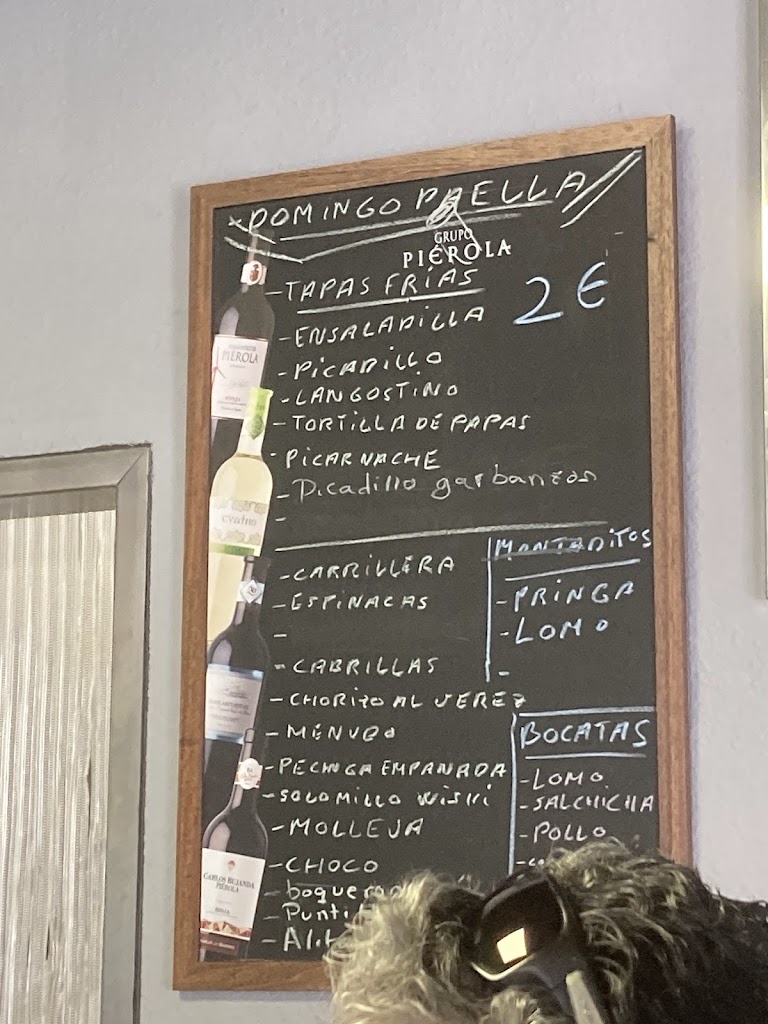 DOMINGO PAELLA
GRUPO
PIÉROLA
-TAPAS FRÍAS
2€
-ENSALADILLA
-PICADILLO
-LANGOSTINO
-TORTILLA DE PAPAS
-PICARNACHE
-Picadillo garbanzos
-
-CARRILLERA
-ESPINACAS
-
-CABRILLAS
-CHORIZO AL JEREZ
-MENUDO
-PECHUGA EMPANADA
-SOLOMILLO WISKI
-MOLLEJA
-CHOCO
-boquero
-Punti
-Ali
MONTADITOS
-PRINGA
-LOMO
-
BOCATAS
-LOMO
-SALCHICHA
-POLLO
PIÉROLA
CARLOS BUJANDA
PIÉROLA
RIOJA